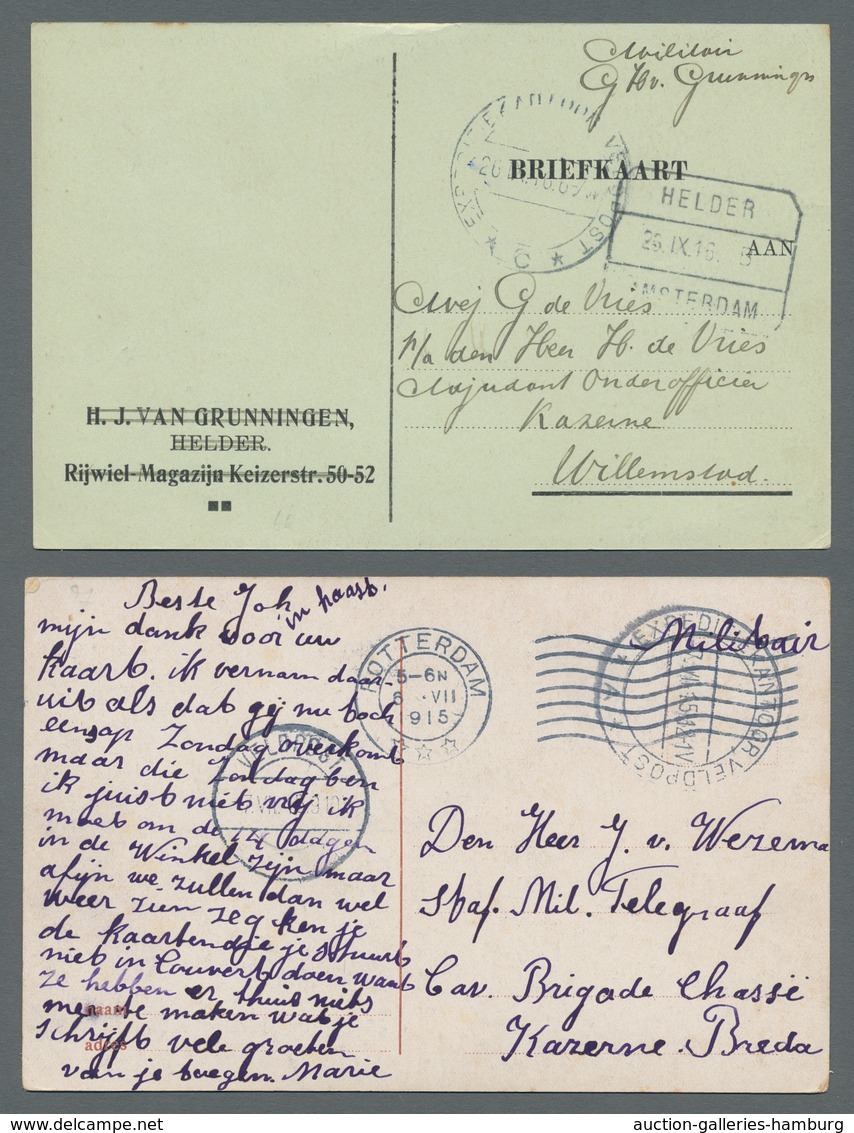 Militair
G Hv. Grunningen
BRIEFKAART
HELDER
26.IX.16. 5
AAN
AMSTERDAM
EXPEDITIEKANTOOR VELDPOST
★ C ★
Mej G de Vries
p/a den Heer H. de Vries
Adjudant Onderofficier
Kazerne
Willemstad.
H. J. VAN GRUNNINGEN,
HELDER.
Rijwiel-Magazijn Keizerstr. 50-52
Beste Joh
in haast.
mijn dank voor uw
kaart. ik vernam daar
uit als dat gij nu toch
eens op Zondag overkomt
maar die Zondag ben
ik juist niet vrij ik
moet om de 14 dagen
in de Winkel zijn maar
afijn we zullen dan wel
weer zien zeg ken je
de kaarten die je stuurt
niet in Couvert doen want
ze hebben er thuis niets
mee te maken wat je
schrijft vele groeten
van je Marie
naam
adres
ROTTERDAM
5-6N
6 VII
915
VELDPOST
EXPEDITIEKANTOOR VELDPOST
Militair
Den Heer J. v. Wezema
Staf. Mil. Telegraaf
Cav. Brigade Chassé
Kazerne. Breda
auction-galleries-hamburg